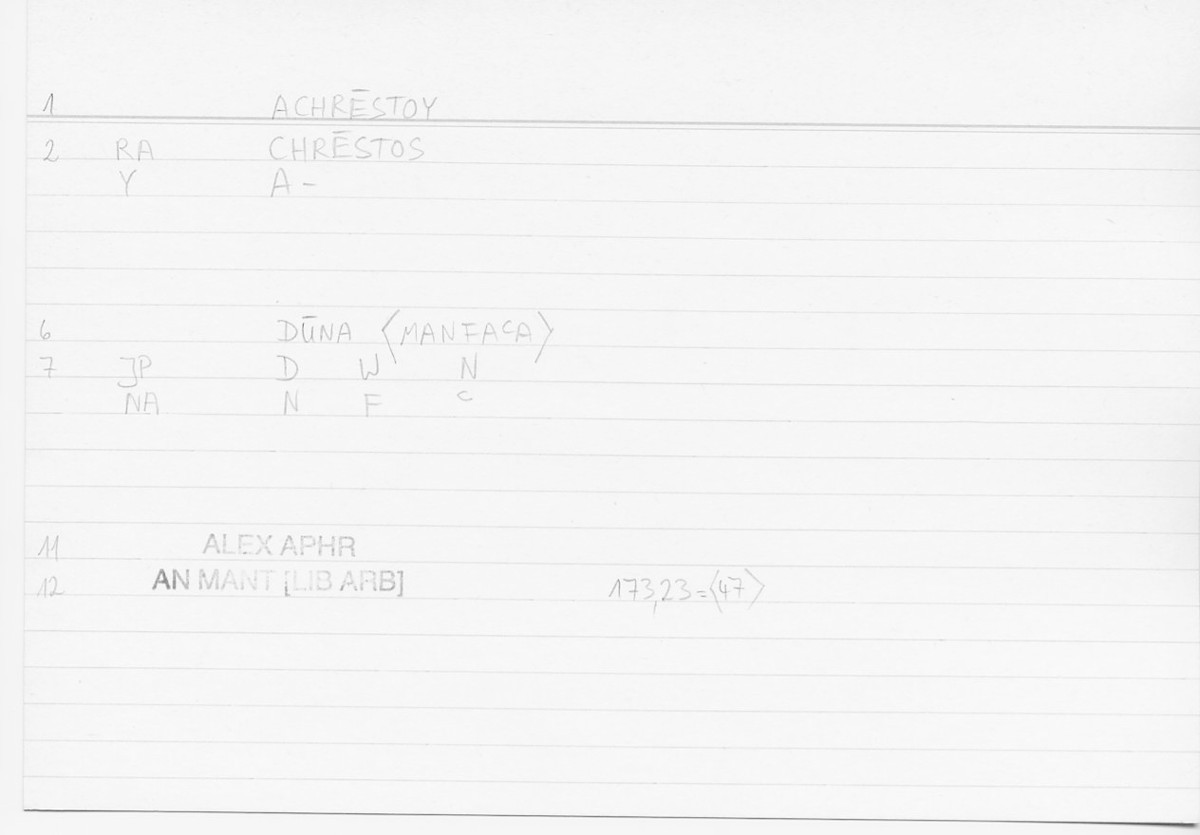 1 ACHRĒSTOY
2 RA CHRĒSTOS
Y A-
6 DŪNA 〈MANFAʿA〉
7 JP D W N
NA N F ʿ
11 ALEX APHR
12 AN MANT [LIB ARB] 173,23=〈47〉